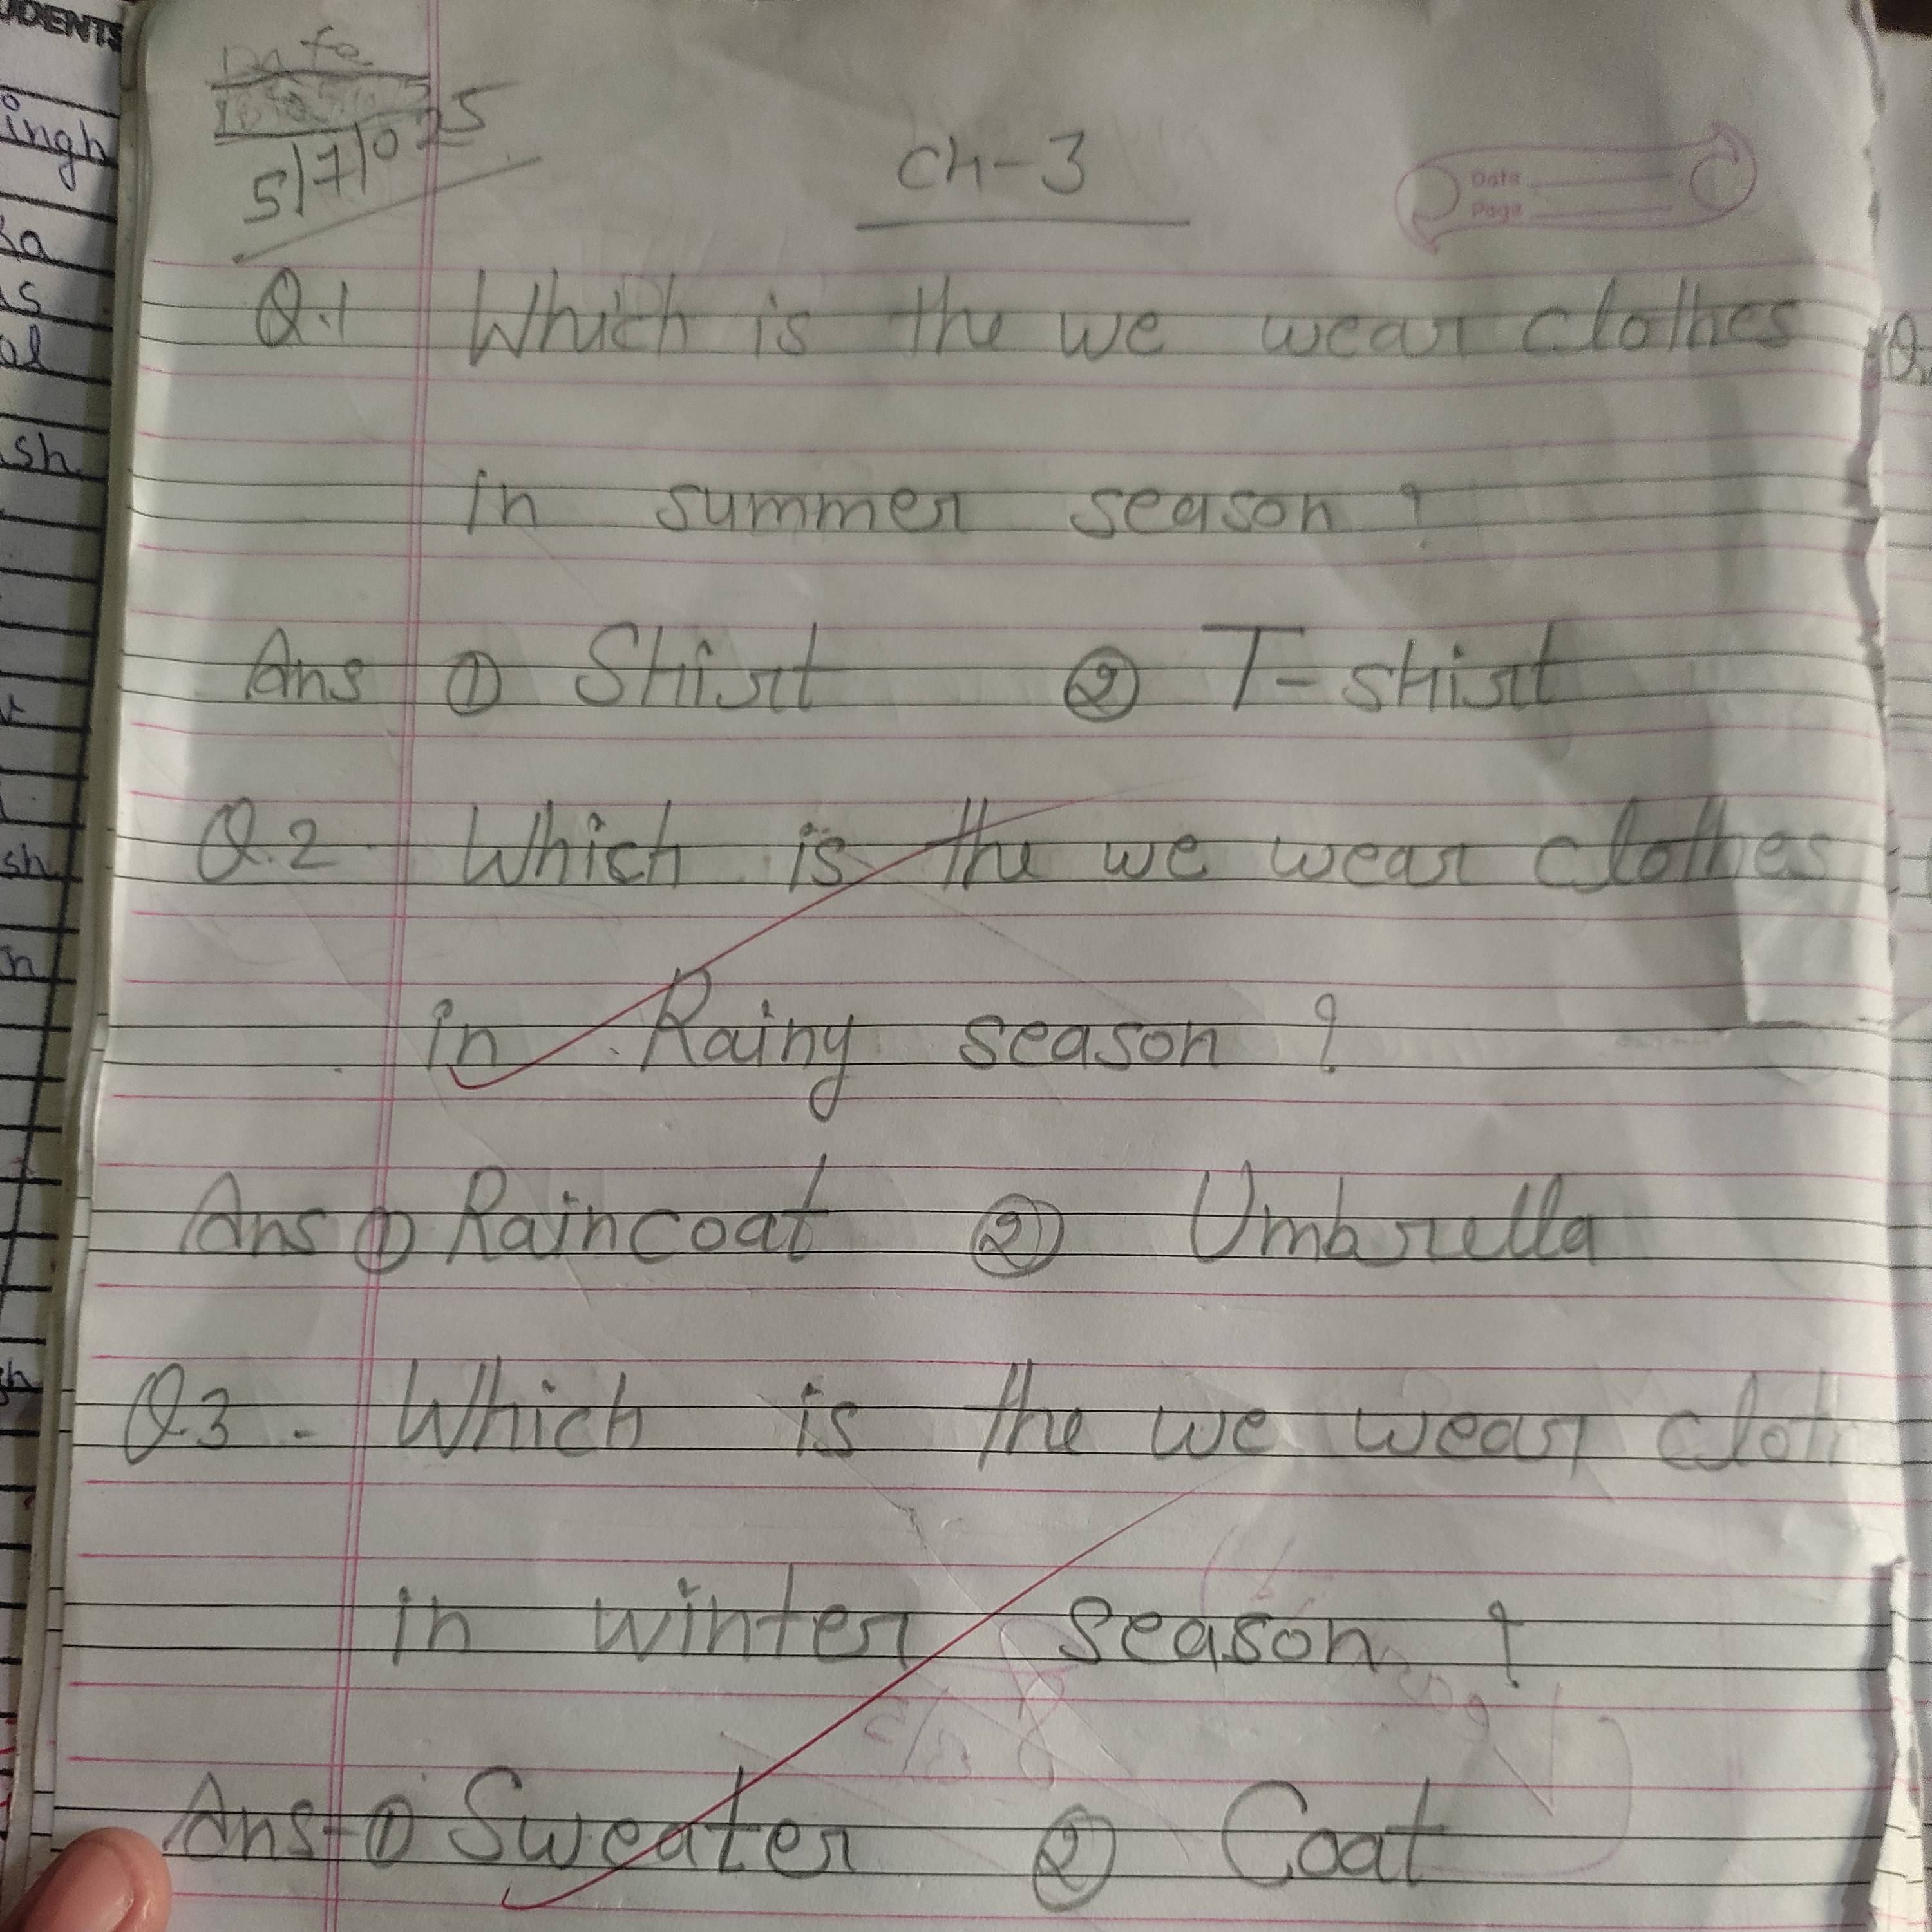 UDENTS
ingh
sh
sh
Date
5/7/025
Ch-3
Date
Page
Q.1 Which is the we wear clothes
in summer season ?
Ans ① Shirt ② T-shirt
Q.2 Which is the we wear clothes
in Rainy season ?
Ans ① Raincoat ② Umbrella
Q.3 - Which is the we wear cloth
in winter season ?
Ans-① Sweater ② Coat